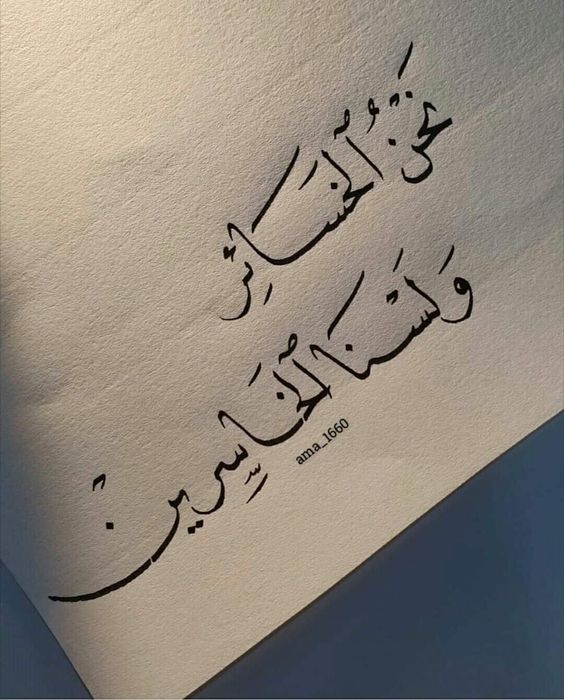 نَحنُ ٱلخسَائِر
وَلَسْنَا ٱلخَاسِرينْ
ama_1660